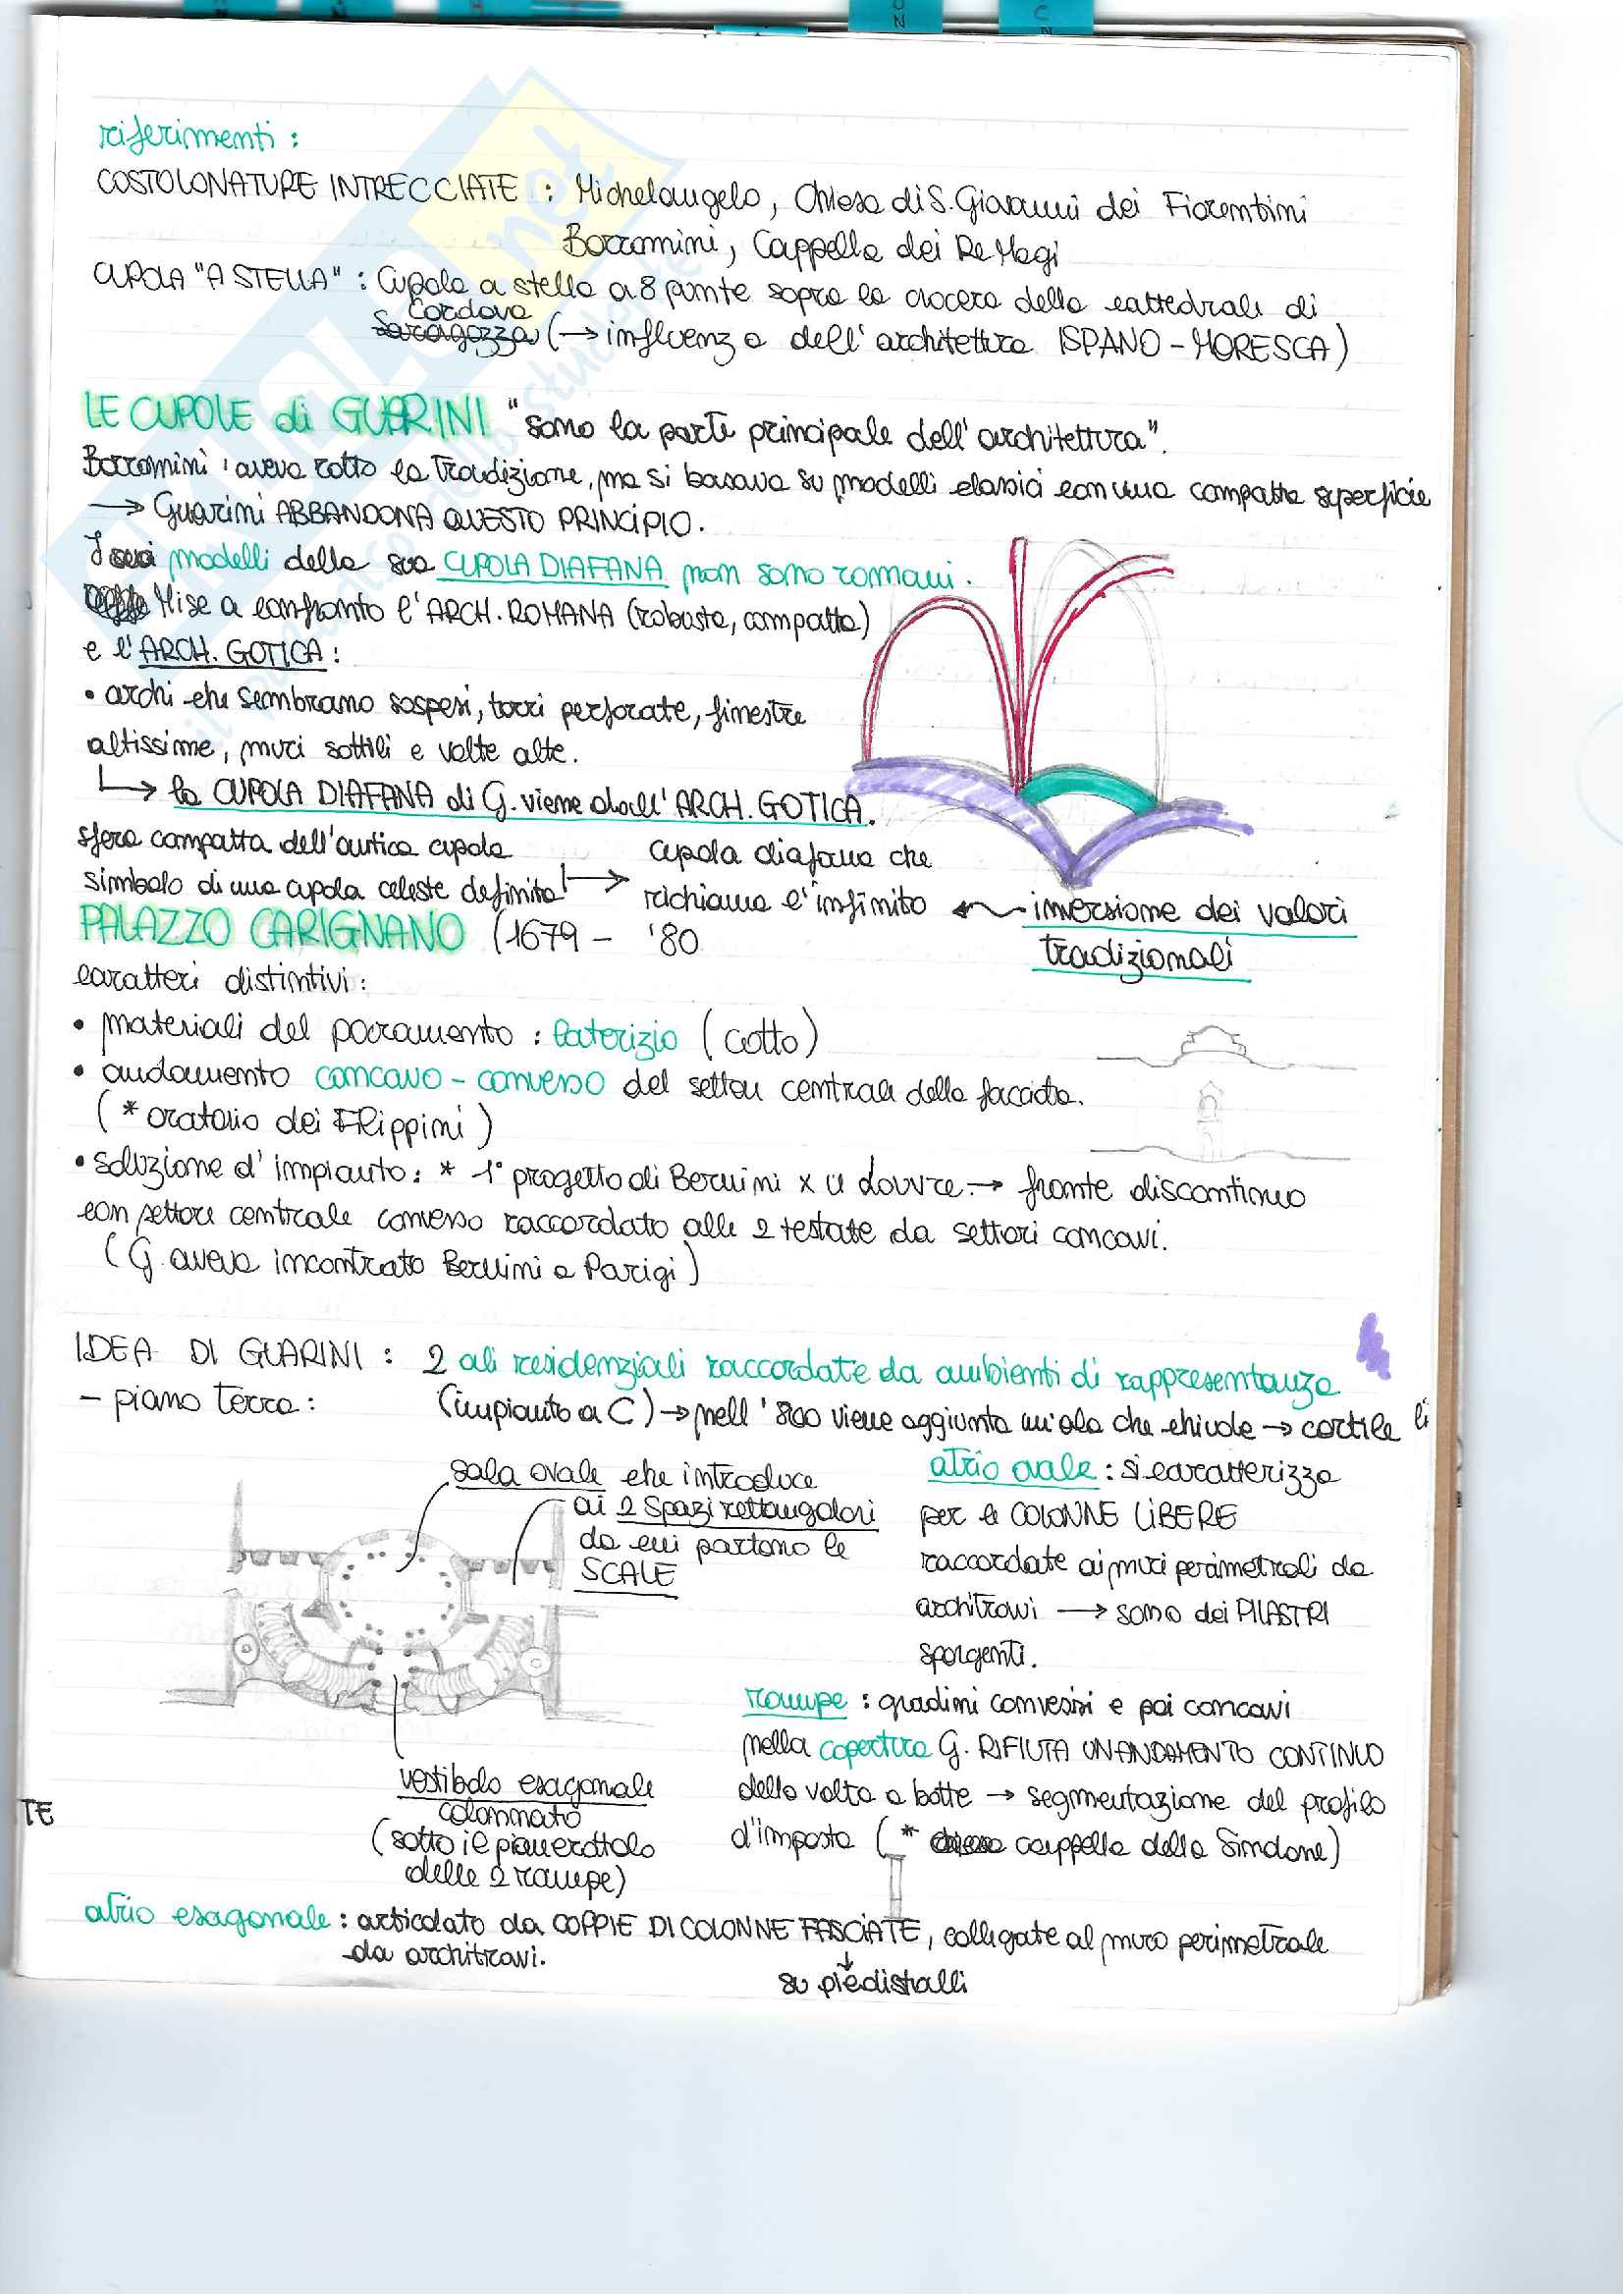 riferimenti :
COSTOLONATURE INTRECCIATE : Michelangelo, Chiesa di S. Giovanni dei Fiorentini
Borromini, Cappella dei Re Magi
CUPOLA "A STELLA" : Cupola a stella a 8 punte sopra la crocera della cattedrale di
Cordova
Saragozza (→ influenza dell'architettura ISPANO-MORESCA)
LE CUPOLE di GUARINI "sono la parte principale dell'architettura".
Borromini aveva rotto la tradizione, ma si basava su modelli classici con una compatta superficie
→ Guarini ABBANDONA QUESTO PRINCIPIO.
I suoi modelli della sua CUPOLA DIAFANA non sono romani.
Mise a confronto l'ARCH. ROMANA (robusta, compatta)
e l'ARCH. GOTICA :
• archi che sembrano sospesi, torri perforate, finestre
altissime, muri sottili e volte alte.
→ la CUPOLA DIAFANA di G. viene dall'ARCH. GOTICA.
sfera compatta dell'antica cupola
simbolo di una cupola celeste definita
→ cupola diafana che
richiama l'infinito
← inversione dei valori
tradizionali
PALAZZO CARIGNANO (1679 - '80
caratteri distintivi :
• materiali del paramento : laterizio (cotto)
• andamento concavo-convesso del settore centrale della facciata.
(* oratorio dei Filippini)
• soluzione d'impianto : * 1° progetto di Bernini x il Louvre. → fronte discontinuo
con settore centrale convesso raccordato alle 2 testate da settori concavi.
(G. aveva incontrato Bernini a Parigi)
IDEA DI GUARINI : 2 ali residenziali raccordate da ambienti di rappresentanza.
- piano terra : (impianto a C) → nell'800 viene aggiunta un'ala che chiude → cortile li
sala ovale che introduce
ai 2 spazi rettangolari
da cui partono le
SCALE
atrio ovale : si caratterizza
per le COLONNE LIBERE
raccordate ai muri perimetrali da
architravi → sono dei PILASTRI
sporgenti.
rampe : gradini convessi e poi concavi
nella copertura G. RIFIUTA UN ANDAMENTO CONTINUO
della volta a botte → segmentazione del profilo
d'imposta (* cappella della Sindone)
vestibolo esagonale
colonnato
(sotto il pianerottolo
delle 2 rampe)
TE
atrio esagonale : articolato da COPPIE DI COLONNE FASCIATE, collegate al muro perimetrale
da architravi.
↓
su piedistalli